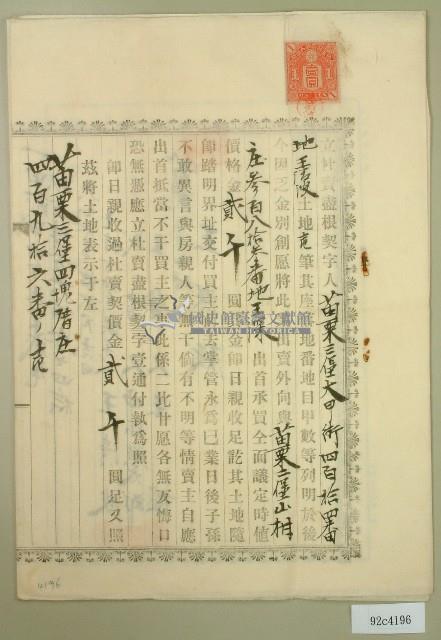 立杜賣盡根契字人苗栗三堡大甲街四百拾四番
地王
土地壱筆其座
地番地目甲數等列明於後
今因乏金別創愿將此
出賣外向與苗栗三堡山柑
庄參百八拾
番地王
出首承買全面議定時値
價格金貳千圓
金卽日親收足訖其土地隨
卽踏明界址交付買主
去掌管永爲已業日後子孫
不敢異言與房親人
無干倘有不明等情賣主自應
出首抵當不干買主之事此係二比甘愿各無反悔口
恐無憑應立杜賣盡根契字壹通付執爲照
卽日親收過杜賣契價金貳千圓足又照
茲將土地表示于左
苗栗三堡四塊厝庄
四百九拾六番ノ壱
國史館臺灣文獻館
TAIWAN HISTORICA
12196
92c4196